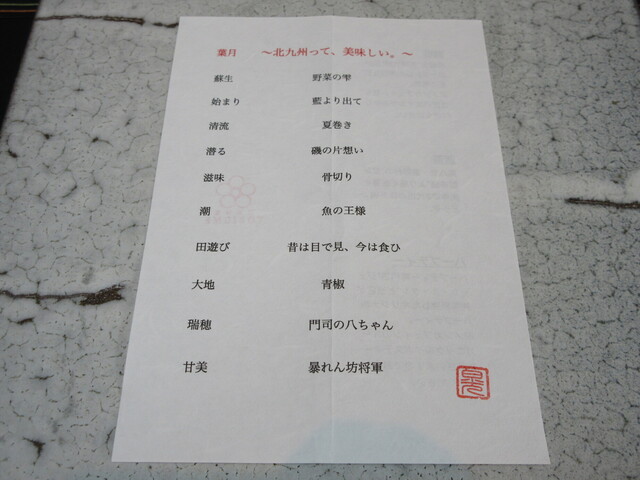 葉月 ～北九州って、美味しい。～
蘇生 野菜の雫
始まり 藍より出て
清流 夏巻き
潜る 磯の片想い
滋味 骨切り
潮 魚の王様
田遊び 昔は目で見、今は食ひ
大地 青椒
瑞穂 門司の八ちゃん
甘美 暴れん坊将軍